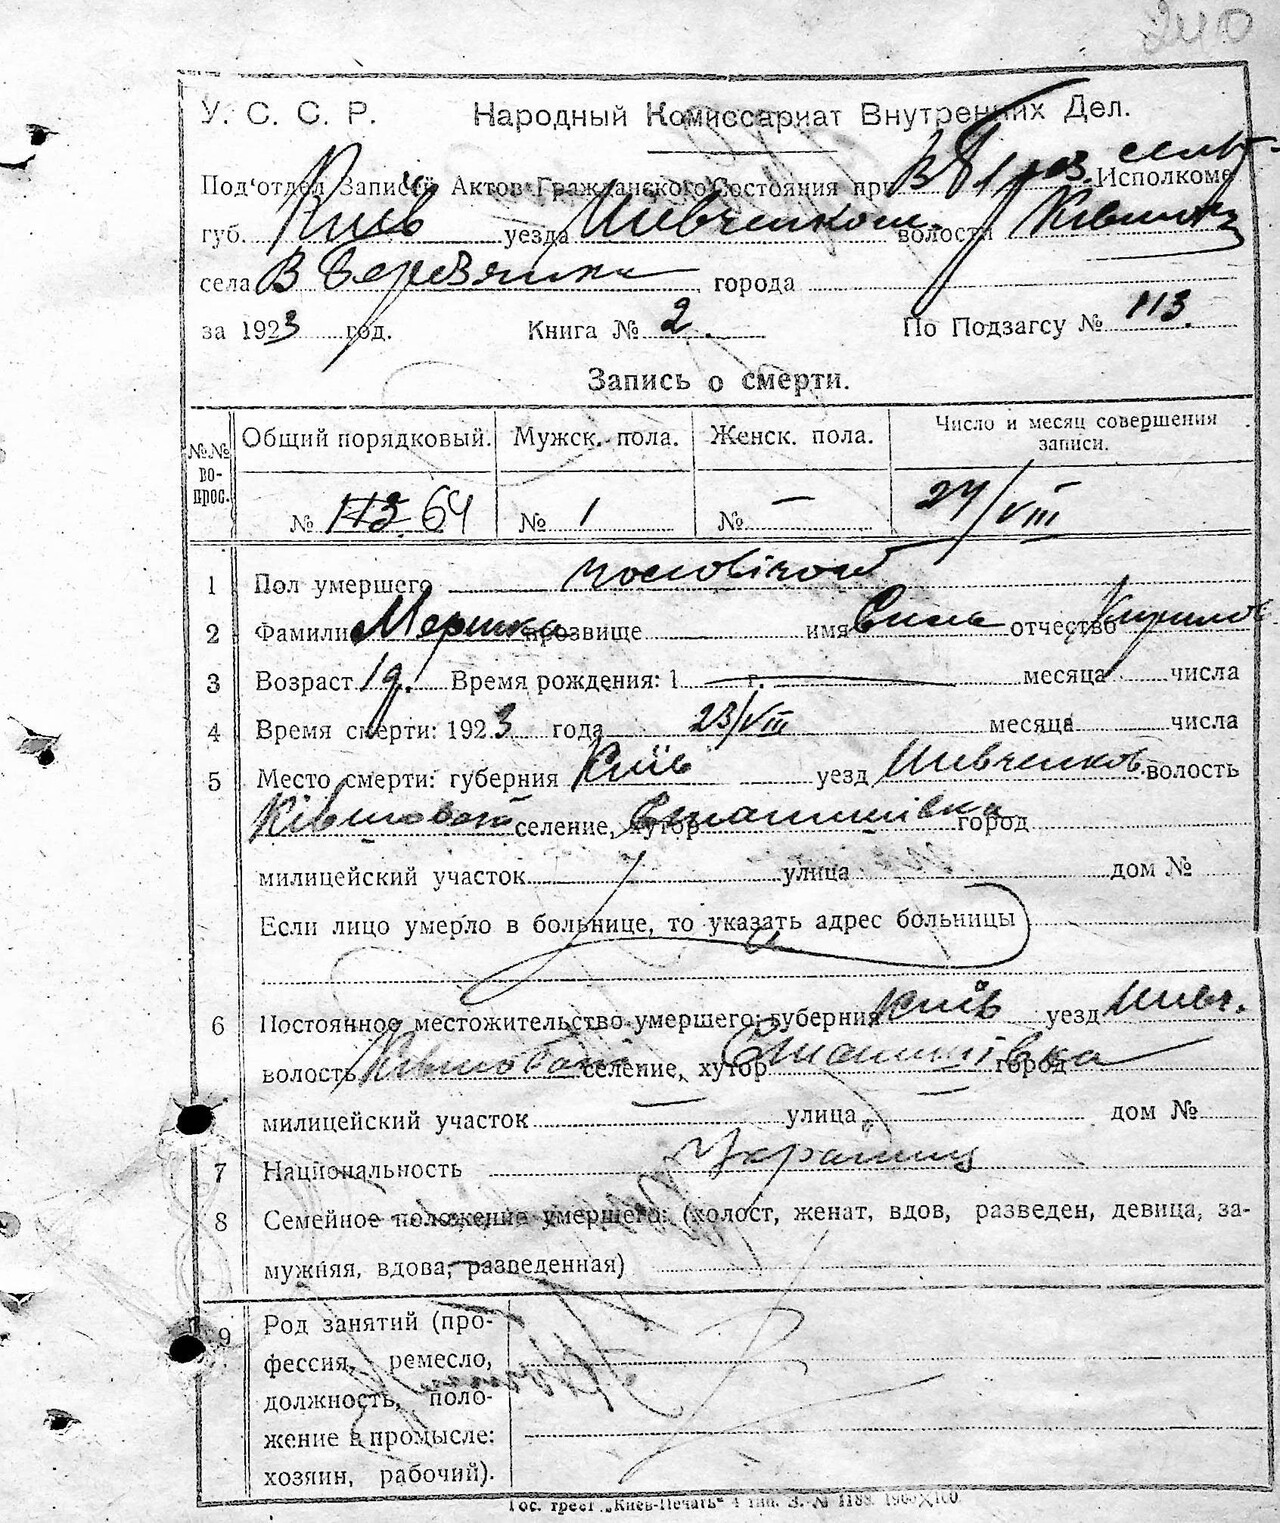 240
У. С. С. Р. Народный Комиссариат Внутренних Дел.
Под'отдел Записей Актов Гражданского Состояния при сель- Исполкоме
губ. Київ уезда Шевченков. волости
села В Березянка города
за 1923 год. Книга № 2. По Подзагсу № 113.
Запись о смерти.
№№ во-прос. Общий порядковый. Мужск. пола. Женск. пола. Число и месяц совершения записи.
№ 113 64 № 1 № — 24/VIII
1 Пол умершего чоловічої
2 Фамилия прозвище имя отчество Кирилов
3 Возраст 1 д. Время рождения: 1 г. месяца числа
4 Время смерти: 1923 года 23/VIII месяца числа
5 Место смерти: губерния Київ уезд Шевченков. волость
селение, хутор город
милицейский участок улица дом №
Если лицо умерло в больнице, то указать адрес больницы
6 Постоянное местожительство умершего: губерния Київ уезд Шевч.
волость селение, хутор город
милицейский участок улица дом №
7 Национальность Украинец
8 Семейное положение умершего: (холост, женат, вдов, разведен, девица, за-
мужняя, вдова, разведенная)
9 Род занятий (про-
фессия, ремесло,
должность, поло-
жение в промысле:
хозяин, рабочий).
Гос. трест „Киев-Печать“ 4 тип. З. № 1188.